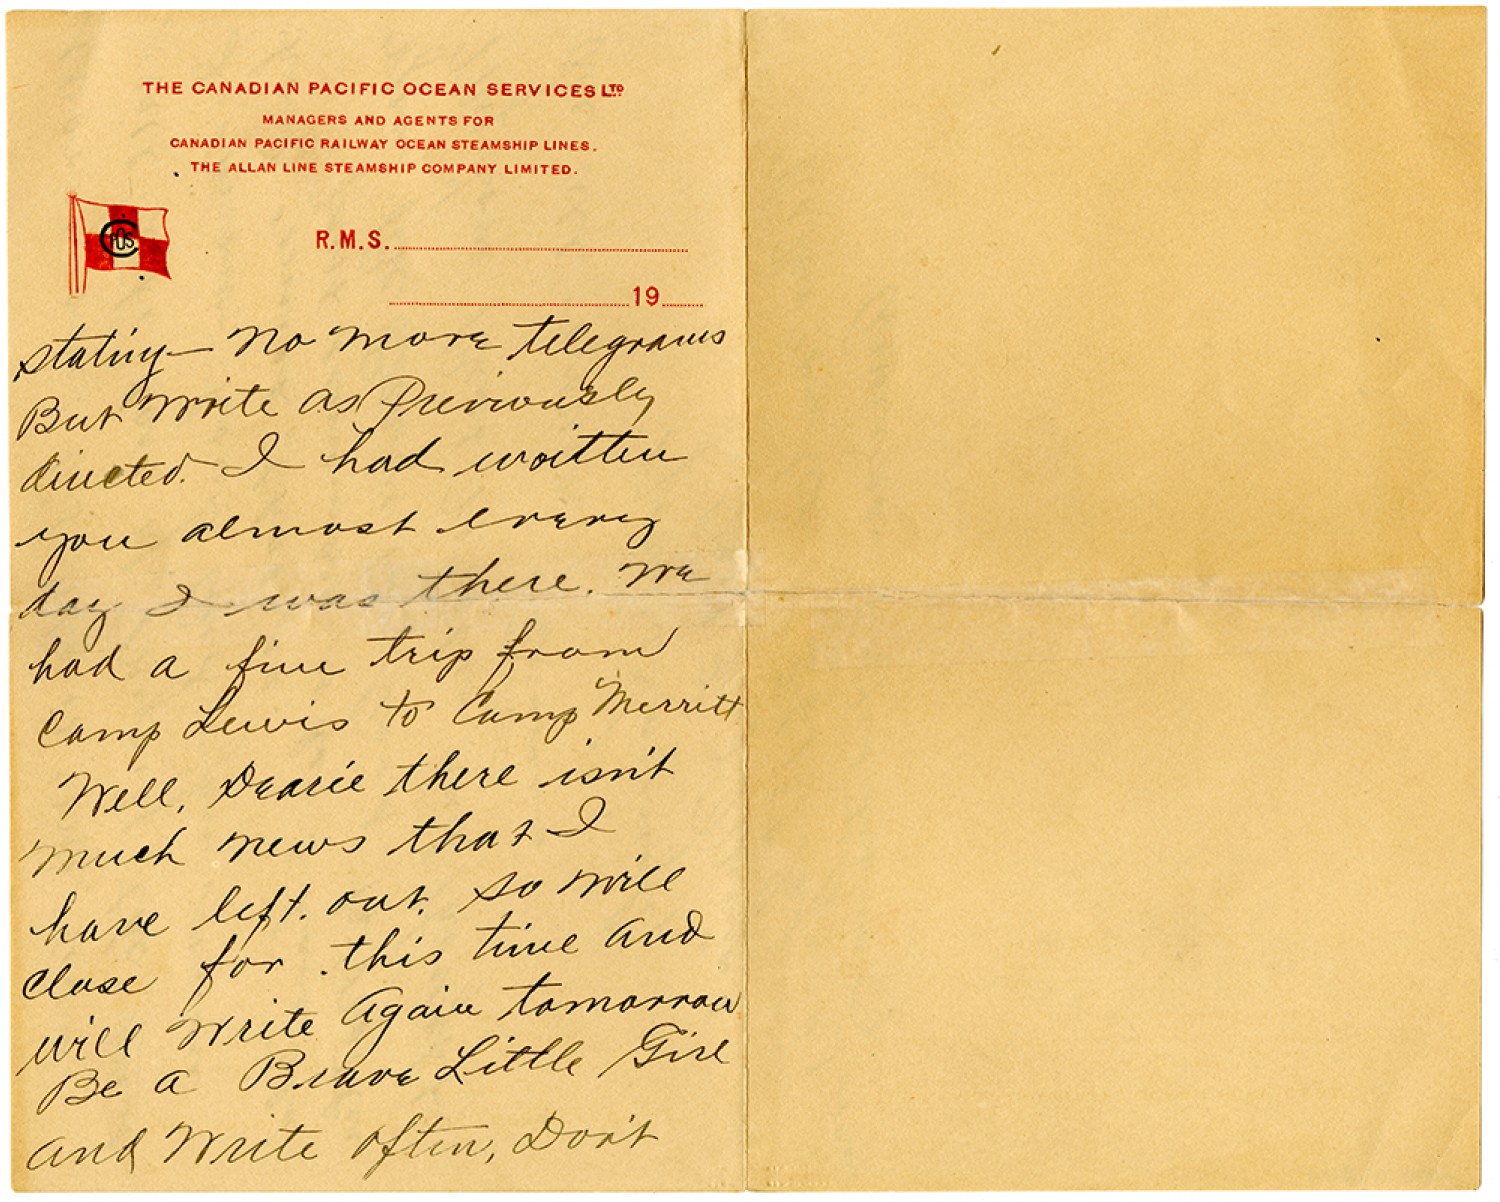 THE CANADIAN PACIFIC OCEAN SERVICES LTD
MANAGERS AND AGENTS FOR
CANADIAN PACIFIC RAILWAY OCEAN STEAMSHIP LINES.
THE ALLAN LINE STEAMSHIP COMPANY LIMITED.
CPOS
R.M.S.
19
stating— No more telegrams
But Write as Previously
directed. I had written
you almost every
day I was there. We
had a fine trip from
Camp Lewis to Camp Merritt
Well, Dearie there isn't
much news that I
have left. out. so will
close for this time and
will Write Again tomorrow
Be a Brave Little Girl
and Write often, Don't